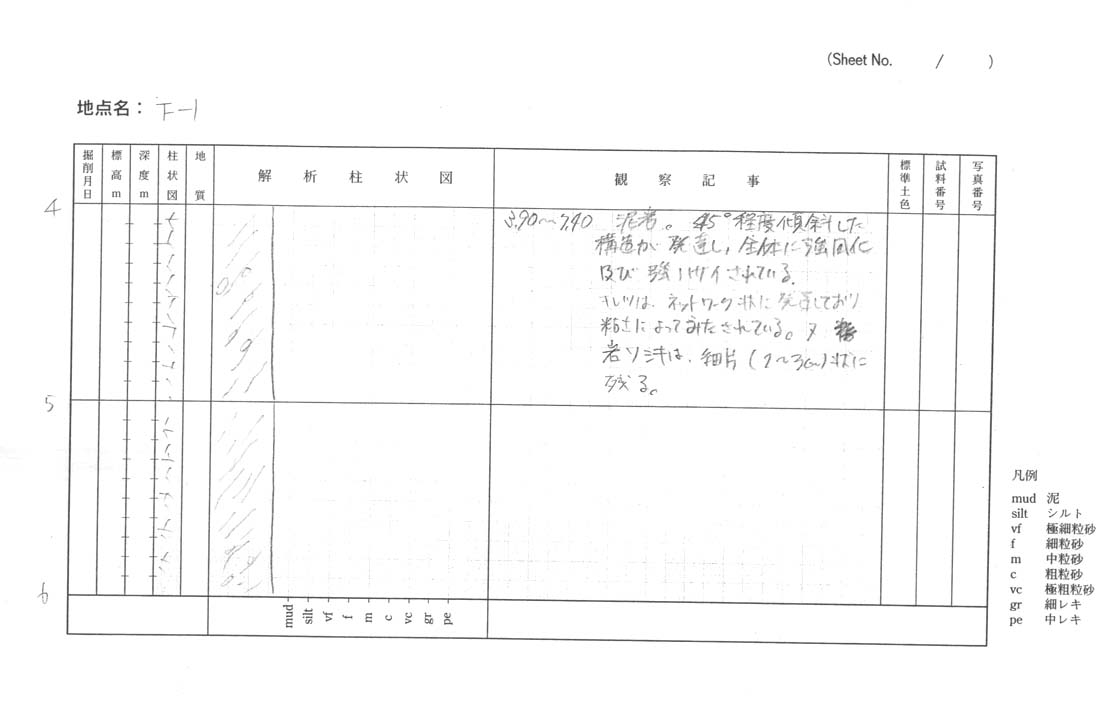 (Sheet No. / )
地点名： F-1
掘削月日 標高m 深度m 柱状図 地質 解析柱状図 観察記事 標準土色 試料番号 写真番号
4
3.90〜7.40 泥岩。45°程度傾斜した
構造が発達し、全体に強固化
及び強ハサイされている。
キレツは、ネットワーク状に発達しており
粘土によってみたされている。又
岩ソミキは、細片(2〜3cm)状に
残る。
5
6
mud silt vf f m c vc gr pe
凡例
mud 泥
silt シルト
vf 極細粒砂
f 細粒砂
m 中粒砂
c 粗粒砂
vc 極粗粒砂
gr 細レキ
pe 中レキ